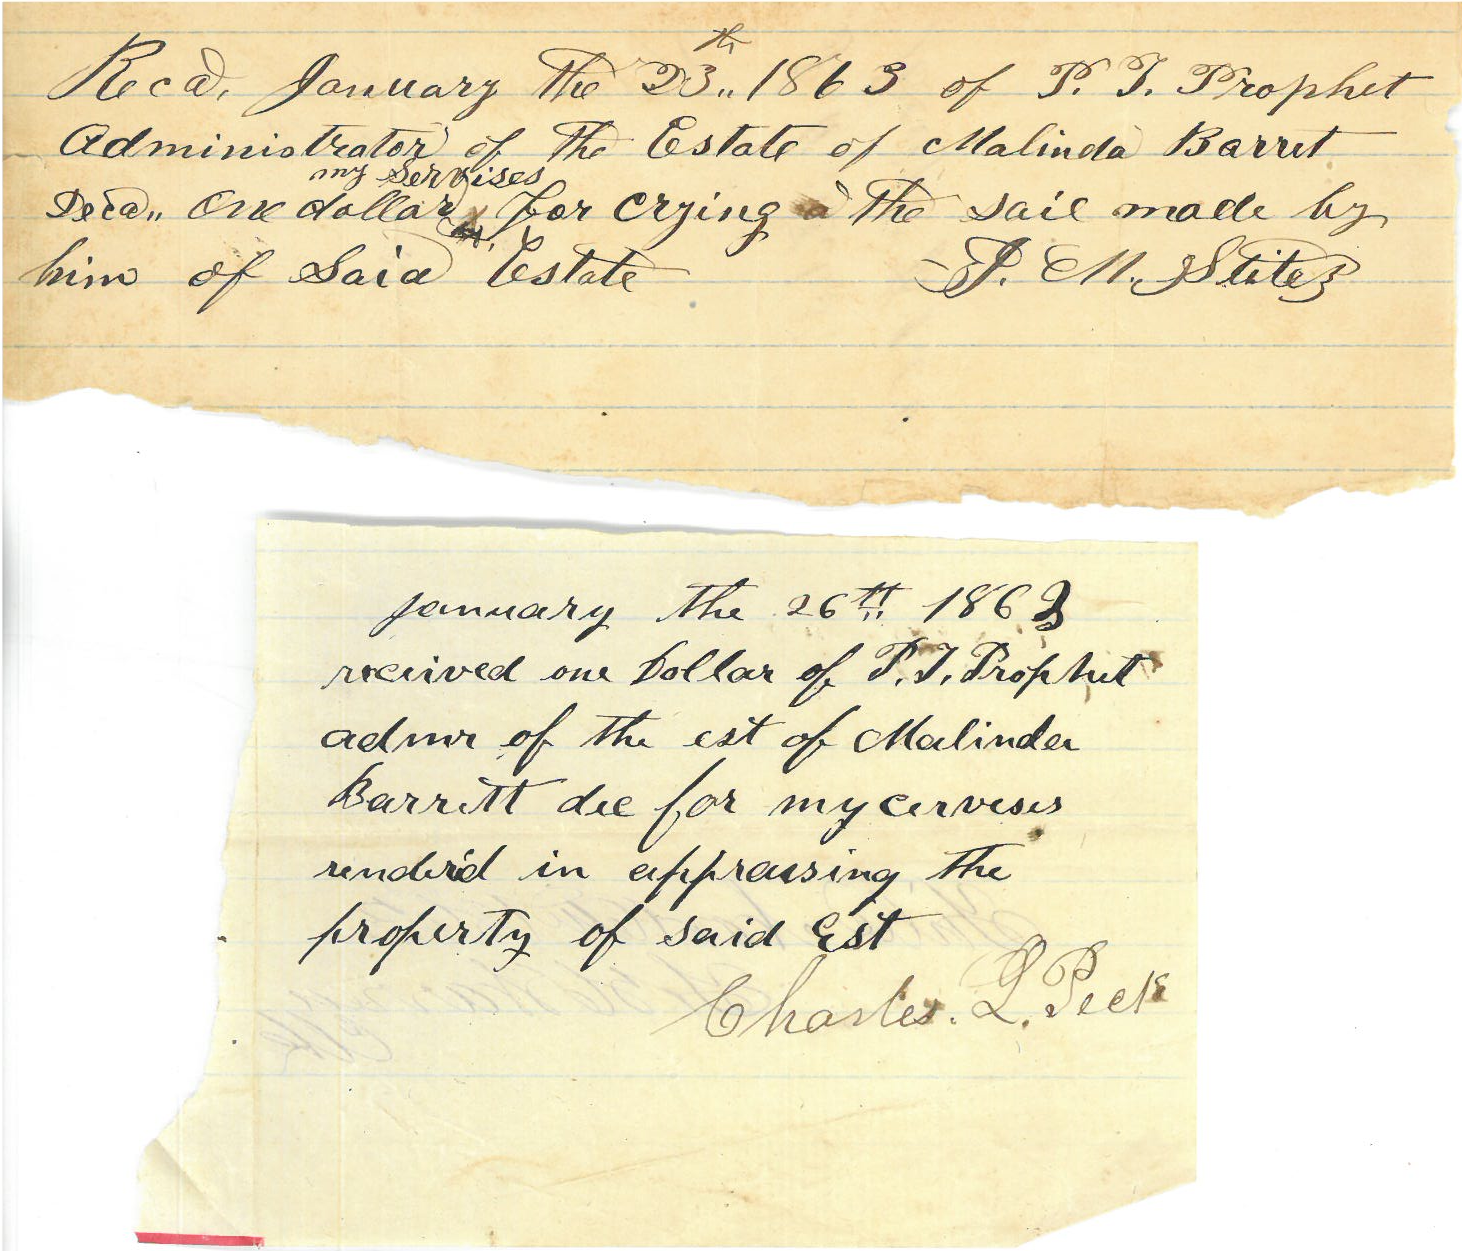 Recd, January the 23th,, 1863 of P. T. Prophet
Administrator of the Estate of Malinda Barret
my Servises
Decd,, One dollar for crying the sail made by
him of Said Estate J. M. Stites
January the 26tt 1863
received one Dollar of P. T. Prophet
admr of the est of Malinda
Barritt dec for my cerveses
renderd in apprassing the
property of said Est
Charles. L. Peck